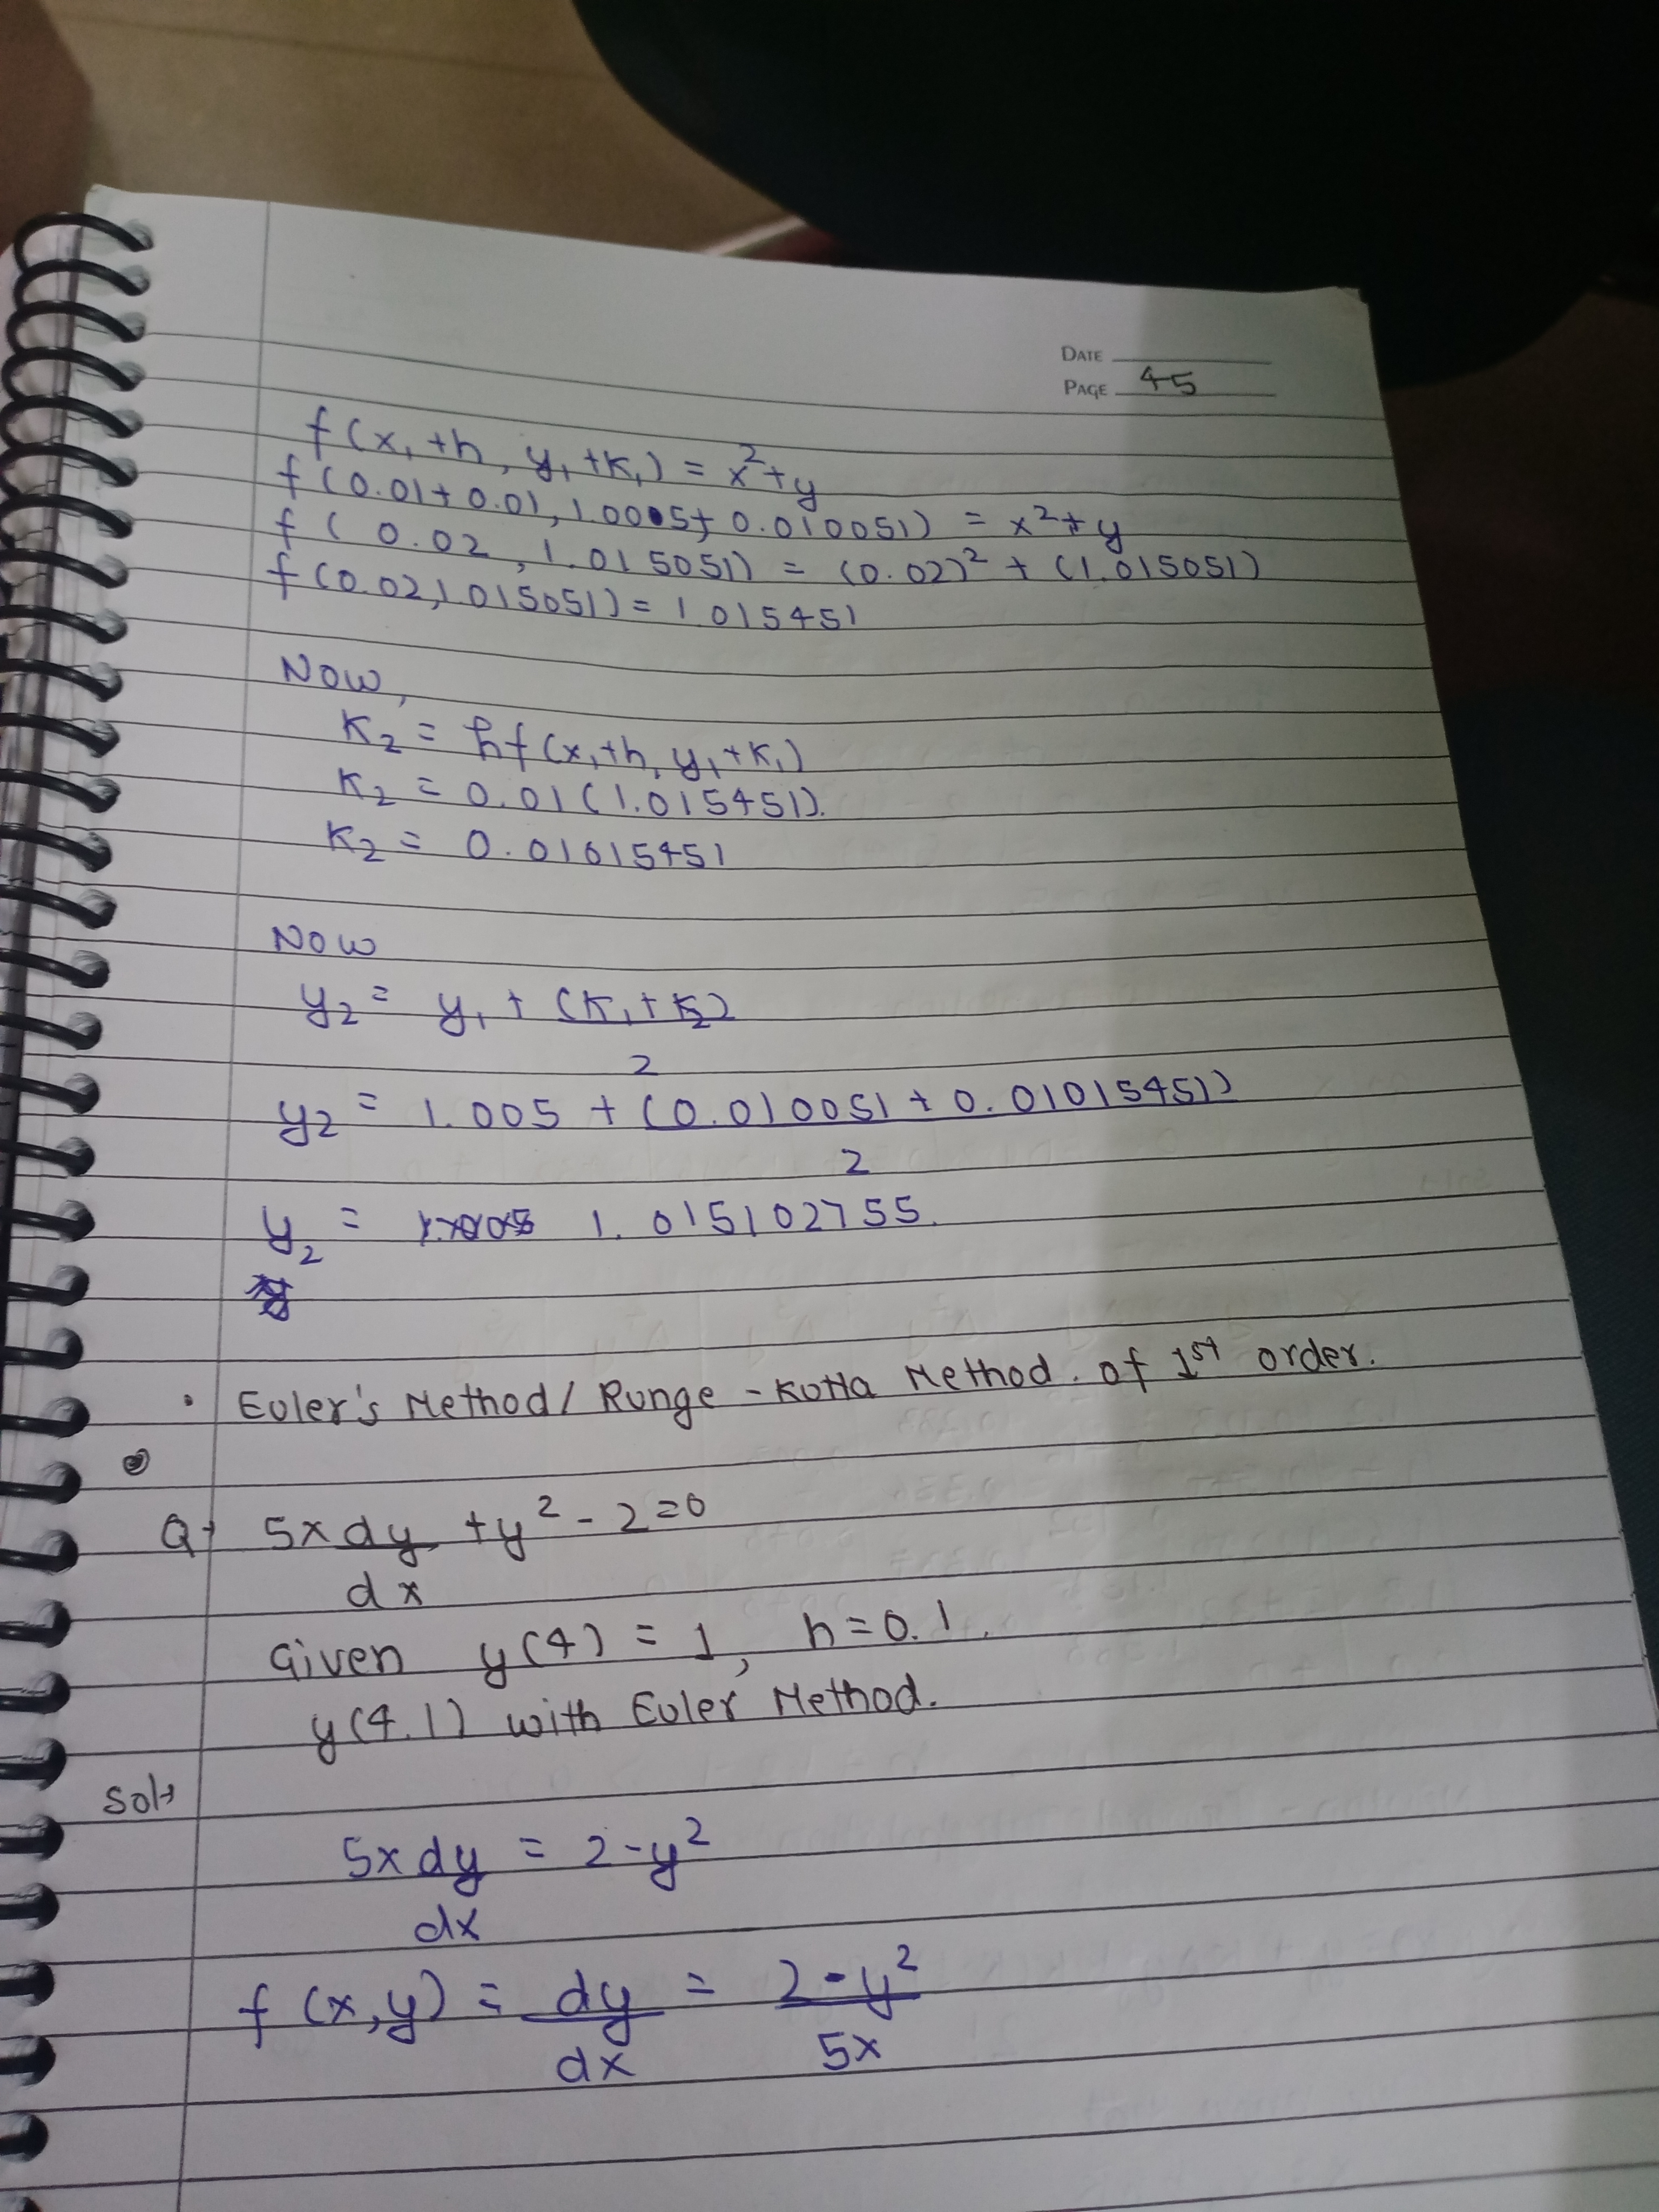 DATE
PAGE 45
f(x₁+h, y₁+K₁) = x²+y
f(0.01+0.01, 1.0005+0.010051) = x²+y
f(0.02, 1.015051) = (0.02)² + (1.015051)
f(0.02,1.015051) = 1.015451
Now,
K₂ = hf(x₁+h, y₁+K₁)
K₂ = 0.01(1.015451).
K₂ = 0.01015451
Now
y₂ = y₁ + (K₁+K₂)
2
y₂ = 1.005 + (0.010051 + 0.01015451)
2
y₂ = 1.015102755.
• Euler's Method/ Runge-Kutta Method. of 1st order.
Q→ 5x dy + y² - 2=0
dx
Given y(4) = 1, h=0.1.
y(4.1) with Euler Method.
Sol→
5x dy = 2-y²
dx
f(x,y) = dy = 2-y²
dx 5x